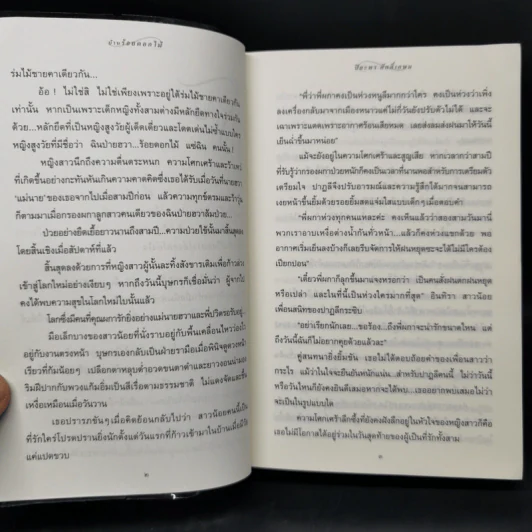 ร่มไม้ชายคาเดียวกัน...
อ้อ ! ไม่ใช่สิ ไม่ใช่เพียงเพราะอยู่ใต้ร่มไม้ชายคาเดียวกัน
เท่านั้น หากเป็นเพราะเด็กหญิงทั้งสามต่างมีหลักยึดทางใจร่วมกัน
ด้วย...หลักยึดที่เป็นหญิงสูงวัยผู้เด็ดเดี่ยวและโดดเด่นไม่ซ้ำแบบใคร
หญิงสูงวัยที่มีชื่อว่า ฉันป่ายฮวา...ร้อยดอกไม้ แซ่ฉัน คนนั้น !
หญิงสาวนึกถึงความตื่นตระหนก ความโศกเศร้าและ
ที่เกิดขึ้นอย่างกะทันหันเกินความคาดคิดซึ่งเธอได้รับเมื่อวันที่นายฮวา
'แม่นาย' ของเธอจากไปเมื่อสามปีก่อน แล้วความทุกข์ตรมและ
ก็ตามมาเมื่อกรองผกาลูกสาวคนเดียวของฉินป่ายฮวาล้มป่วย...
ป่วยอย่างยืดเยื้อยาวนานถึงสามปี...ความป่วยไข้นั้นมาสิ้นสุดลง
โดยสิ้นเชิงเมื่อสัปดาห์ที่แล้ว
สิ้นสุดลงด้วยการที่หญิงสาวผู้นั้นละทิ้งสังขารเดิมเพื่อก้าว
เข้าสู่โลกใหม่อย่างเงียบๆ หากถึงวันนี้บุษกรก็เชื่อมั่นว่า ผู้จากไป
คงได้พบความสุขในโลกใหม่ใบนั้นแล้ว
โลกซึ่งมีคนที่คุณผการักยิ่งอย่างแม่นายฮวาและพี่ปวีตรอรับอยู่...
มือเล็กบางของสาวน้อยที่นั่งราบอยู่กับพื้นเคลื่อนไหวว่องไว
อยู่กับงานตรงหน้า บุษกรเองกลับเป็นฝ่ายรามือเมื่อพินิจดูดวงหน้า
เรียวที่ก้มน้อยๆ เปลือกตาหลุบต่ำอวดขนตาดำและยาวงอน
ริมฝีปากกับพวงแก้มอิ่มเป็นสีเรื่อตามธรรมชาติ ไม่แดงจัดและชื้น
เหงื่อเหมือนเมื่อวันวาน
เธอปรารภขันๆ เมื่อคิดย้อนกลับไปว่า สาวน้อยคนนี้เป็น
ที่รักใคร่โปรดปรานยิ่งนักตั้งแต่วันแรกที่ก้าวเข้ามาในบ้านเมื่อมีวัย
แค่แปดขวบ
๒
"พี่ว่าพี่ผกาคงเป็นห่วงหนูดีมากกว่าใคร คงเป็นห่วงว่าเพิ่ง
ลงเครื่องกลับมาจากเมืองหนาวแค่ไม่กี่วันยังปรับตัวไม่ได้ และจะ
เฉาเพราะแดดเพราะอากาศร้อนเสียหมด เลยส่งลมส่งฝนมาให้วันนี้
เย็นฉ่ำขึ้นมาหน่อย"
แม้จะยังอยู่ในความโศกเศร้าและสูญเสีย หากเวลากว่าสามปี
ที่รับรู้ว่ากรองผกาป่วยหนักก็คงเป็นเวลาที่นานพอสำหรับการเตรียมตัว
เตรียมใจ ปาฏลีจึงปรับอารมณ์และความรู้สึกได้มากจนสามารถ
เงยหน้าขึ้นยิ้มด้วยรอยยิ้มสดแจ่มใสแบบเด็กๆ เมื่อตอบคำ
"พี่ผกาห่วงทุกคนแหละค่ะ คงเห็นแล้วว่าสองสามวันมานี่
พวกเราอาบเหงื่อต่างน้ำกันทั่วหน้า...แล้วก็คงห่วงแขกด้วย พอ
อากาศเริ่มเย็นลงบ้างก็เลยรีบจัดการให้ฝนหยุดซะจะได้ไม่มีใครต้อง
เปียกปอน"
"เดี๋ยวพี่ผกาก็ลุกขึ้นมาแจงหรอกว่า เป็นคนสั่งฝนตกฝนหยุด
หรือเปล่า และในที่นี้เป็นห่วงใครมากที่สุด" อินทิรา สาวน้อย
เพื่อนสนิทของปาฏลีกระซิบ
"อย่าเรียกนักเลย...ขอร้อง...ถึงพี่ผกาจะน่ารักขนาดไหน แต่
ถึงวันนี้ฉันก็ไม่อยากคุยด้วยแล้ว"
คู่สนทนายิ่งยิ้มขัน เธอไม่ได้ตอบถ้อยคำของเพื่อนสาวว่า
กระไร แม้ว่าในใจจะยืนยันหนักแน่น...สำหรับปาฏลีคนนี้ ไม่ว่าวันนี้
หรือวันไหนก็ยังคงยินดีเสมอหากจะได้พบ...เธออยากพบเสมอไม่ว่า
จะเป็นในรูปแบบใด
ความโศกเศร้าลึกซึ้งที่ยังคงฝังลึกอยู่ในหัวใจของหญิงสาวก็คือ
เธอไม่มีโอกาสได้อยู่ร่วมในวันสุดท้ายของผู้เป็นที่รักทั้งสาม
๑